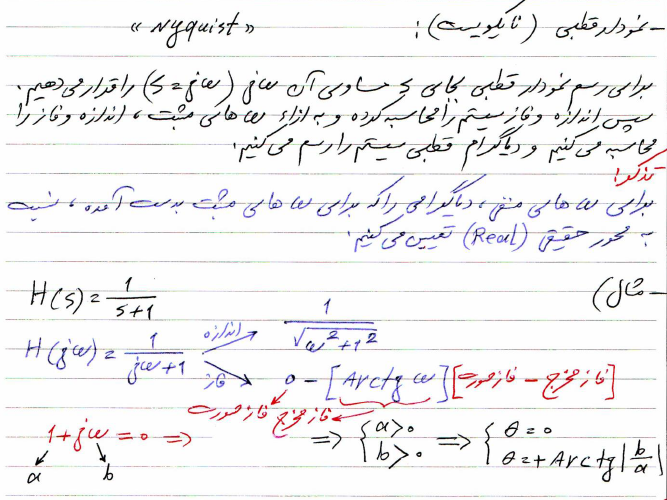 - نمودار قطبی (نایکویست): « Nyquist »
برای رسم نمودار قطبی بجای s مساوی آن jω (s = jω) را قرار می‌دهیم.
سپس اندازه و فاز سیستم را محاسبه کرده و به ازاء ω های مثبت، اندازه و فاز را
محاسبه می‌کنیم و دیاگرام قطبی سیستم را رسم می‌کنیم.
تذکر!
برای ω های منفی، دیاگرامی را که برای ω های مثبت بدست آمده، نسبت
به محور حقیقی (Real) تعیین می‌کنیم.
- مثال)
H(s) = 1/(s+1)
H(jω) = 1/(jω+1) اندازه → 1/√(ω²+1²)
فاز → 0 - [Arctg ω] [فاز مخرج - فاز صورت]
فاز مخرج فاز صورت
1+jω = 0 ⇒ ⇒ { a>0 ⇒ { θ = 0
a b b>0 θ = + Arctg |b/a|